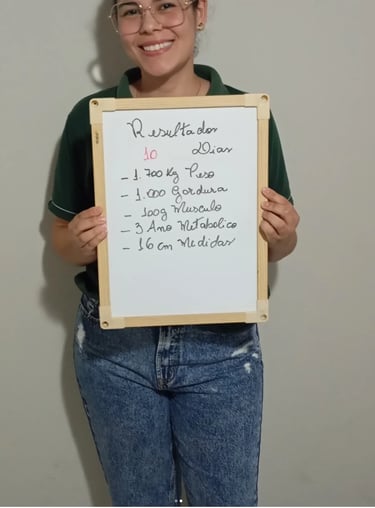 Resultados
10 Dias
- 1.700 Kg Peso
- 1.000 Gordura
- 100g Musculo
- 3 Ano Metabolico
- 16 cm Medidas